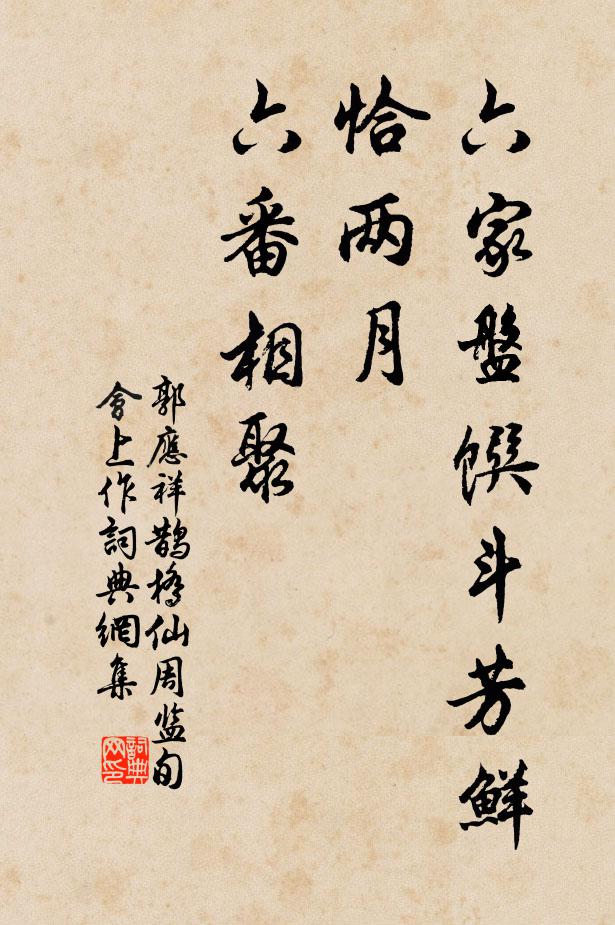 六家盤饌斗芳鮮
恰两月
六番相聚
郭應祥鵲橋仙周监旬
會上作詞典網集
詞典
网印